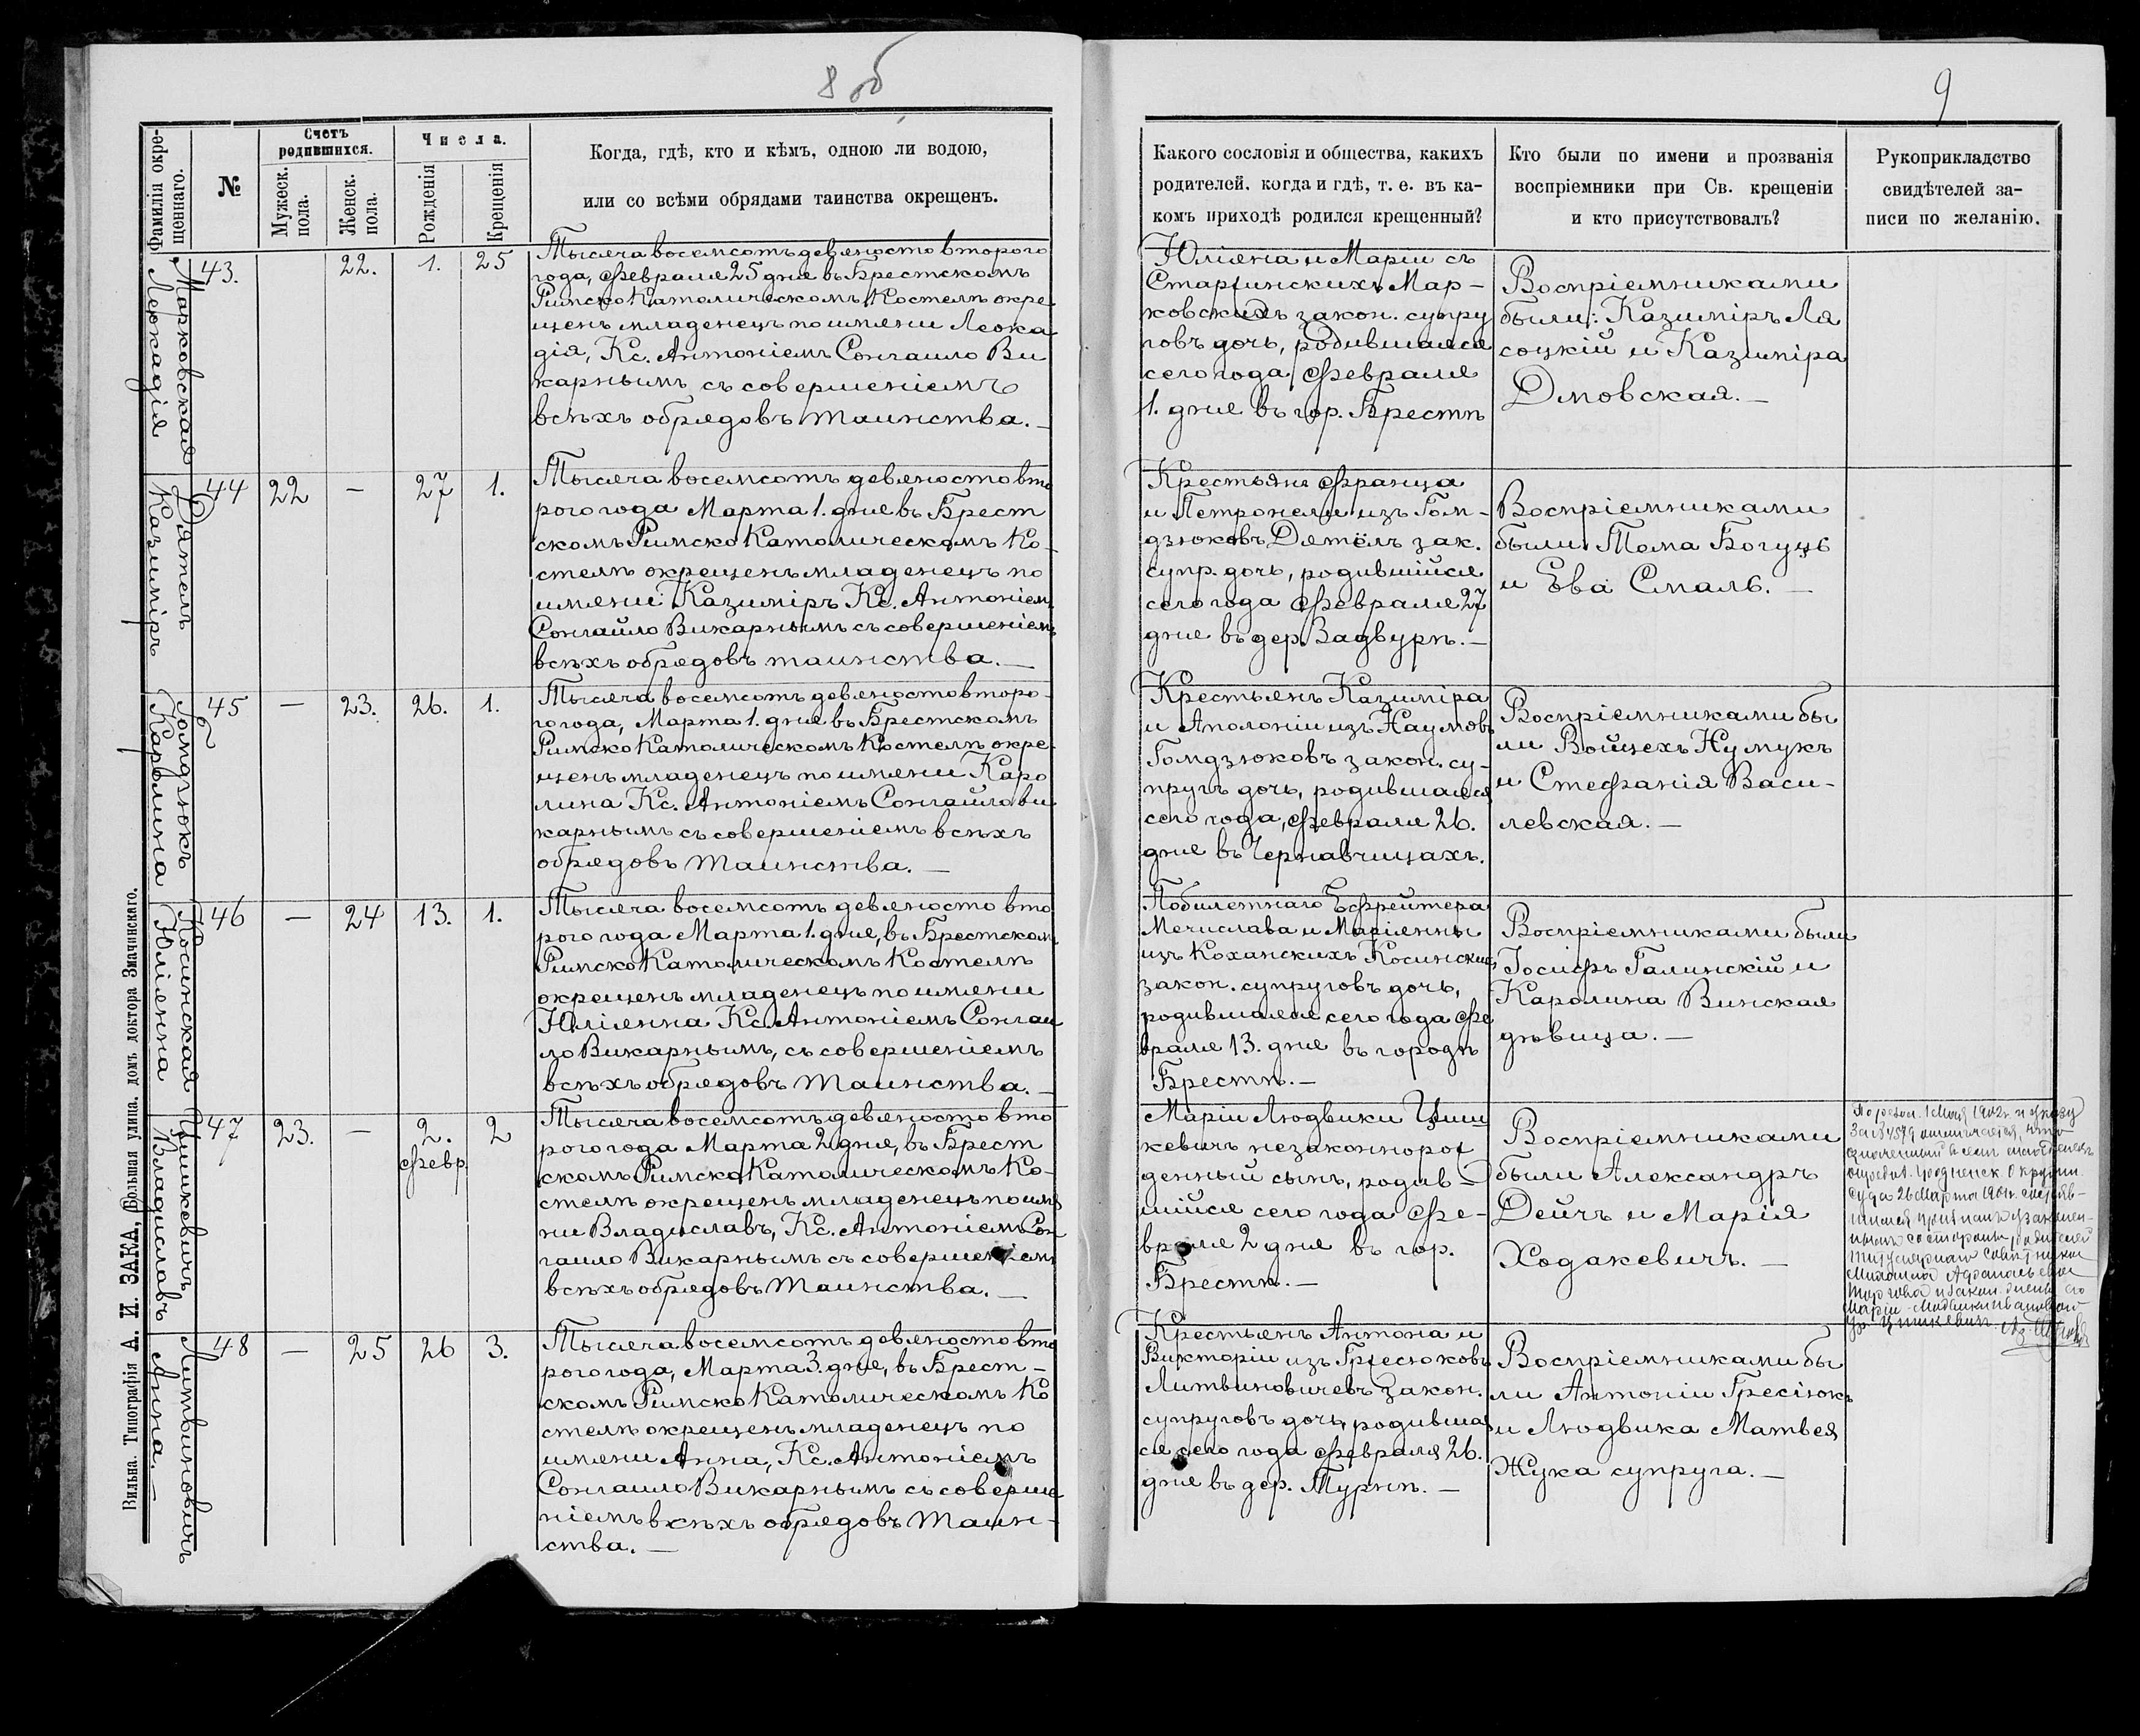 8 об
9
Фамилія окре-
щеннаго.
№
Счетъ
родившихся.
Мужеск.
пола.
Женск.
пола.
Числа.
Рожденія
Крещенія
Когда, гдѣ, кто и кѣмъ, одною ли водою,
или со всѣми обрядами таинства окрещенъ.
Какого сословія и общества, какихъ
родителей, когда и гдѣ, т. е. въ ка-
комъ приходѣ родился крещенный?
Кто были по имени и прозванія
воспріемники при Св. крещеніи
и кто присутствовалъ?
Рукоприкладство
свидѣтелей за-
писи по желанію.
Марковская
Леокадія
43.
22.
1.
25
Тысяча восемсотъ девяносто второго
года, Февраля 25 дня въ Брестскомъ
Римско Католическомъ Костелѣ окре
щенъ младенецъ по имени Леока
дія, Кс. Антоніемъ Сонгаило Ви
карнымъ съ совершеніемъ
всѣхъ обрядовъ таинства. —
Юліяна и Маріи съ
Старчинскихъ Мар-
ковскихъ закон. супру
говъ дочь, родившаяся
сего года Февраля
1. дня въ гор. Брестѣ
Воспріемниками
были: Казиміръ Ля
соцкій и Казиміра
Дмовская. —
Дятелъ
Казиміръ
44
22
—
27
1.
Тысяча восемсотъ девяносто вто
рого года Марта 1. дня въ Брест
скомъ Римско Католическомъ Ко-
стелѣ окрещенъ младенецъ по
имени Казиміръ Кс. Антоніем
Сонгайло Викарнымъ съ совершеніемъ
всѣхъ обрядовъ таинства. —
Крестьянъ Франца
и Петронели изъ Гом-
дзюковъ Дятёлъ зак.
супр. дочь, родившійся
сего года Февраля 27
дня въ дер. Задвурѣ. —
Воспріемниками
были Тома Богуць
и Ева Смаль. —
Гомдзюкъ
Каролина
45
—
23.
26.
1.
Тысяча восемсотъ девяносто второ-
го года, Марта 1. дня въ Брестскомъ
Римско Католическомъ Костелѣ окре-
щенъ младенецъ по имени Каро
лина Кс. Антоніемъ Сонгайло ви
карнымъ съ совершеніемъ всѣхъ
обрядовъ Таинства. —
Крестьянъ Казиміра
и Аполоніи изъ Наумовъ
Гомдзюковъ закон. су-
пругъ дочь, родившаяся
сего года, Февраля 26.
дня въ Чернавчицахъ.
Воспріемниками бы
ли Войцехъ Нумукъ
и Стефанія Васи-
левская. —
Косинская
Юліянна
46
—
24
13.
1.
Тысяча восемсотъ девяносто вто
рого года Марта 1. дня, въ Брестском
Римско Католическомъ Костелѣ
окрещенъ младенецъ по имени
Юліянна Кс. Антоніемъ Сонгаи
ло Викарнымъ, съ совершеніемъ
всѣхъ обрядовъ Таинства. —
Побилетнаго Ефрейтера
Мечислава и Маріянны
изъ Коханскихъ Косинских
закон. супруговъ дочь,
родившаяся сего года Фе
враля 13. дня въ городѣ
Брестѣ. —
Воспріемниками были
Іосифъ Галинскій и
Каролина Винская
дѣвица. —
Цишкевичъ
Владиславъ
47
23.
—
2.
Февр
2
Тысяча восемсотъ девяносто вто
рого года Марта 2 дня, въ Брест
скомъ Римско Католическомъ Ко-
стелѣ окрещенъ младенецъ по име
ни Владиславъ, Кс. Антоніем Сон
гаило Викарнымъ съ совершеніемъ
всѣхъ обрядовъ Таинства. —
Маріи Людвики Циш
кевичъ незаконнорож
денный сынъ, родив-
шійся сего года Фе-
враля 2 дня въ гор.
Брестѣ. —
Воспріемниками
были Александръ
Дейчъ и Марія
Ходакевичъ. —
1 Мая 1902 г.
За № 4879 что
Окружн.
Суда 26 Марта 1901
Маріи
Литвиновичъ
Анна. —
48
—
25
26
3.
Тысяча восемсотъ девяносто вто
рого года, Марта 3. дня, въ Брест-
скомъ Римско Католическомъ Ко
стелѣ окрещенъ младенецъ по
имени Анна, Кс. Антоніемъ
Сонгаило Викарнымъ съ соверше
ніемъ всѣхъ обрядовъ Таин-
ства. —
Крестьянъ Антона и
Викторіи изъ Гресюковъ
Литвиновичевъ закон.
супруговъ дочь, родивша
ся сего года Февраля 26.
дня въ дер. Турнѣ. —
Воспріемниками бы
ли Антоніи Гресіюкъ
и Людвика Матвея
Жука супруга. —
Вильна. Типографія А. И. ЗАКА, Большая улица, домъ доктора Значинскаго.